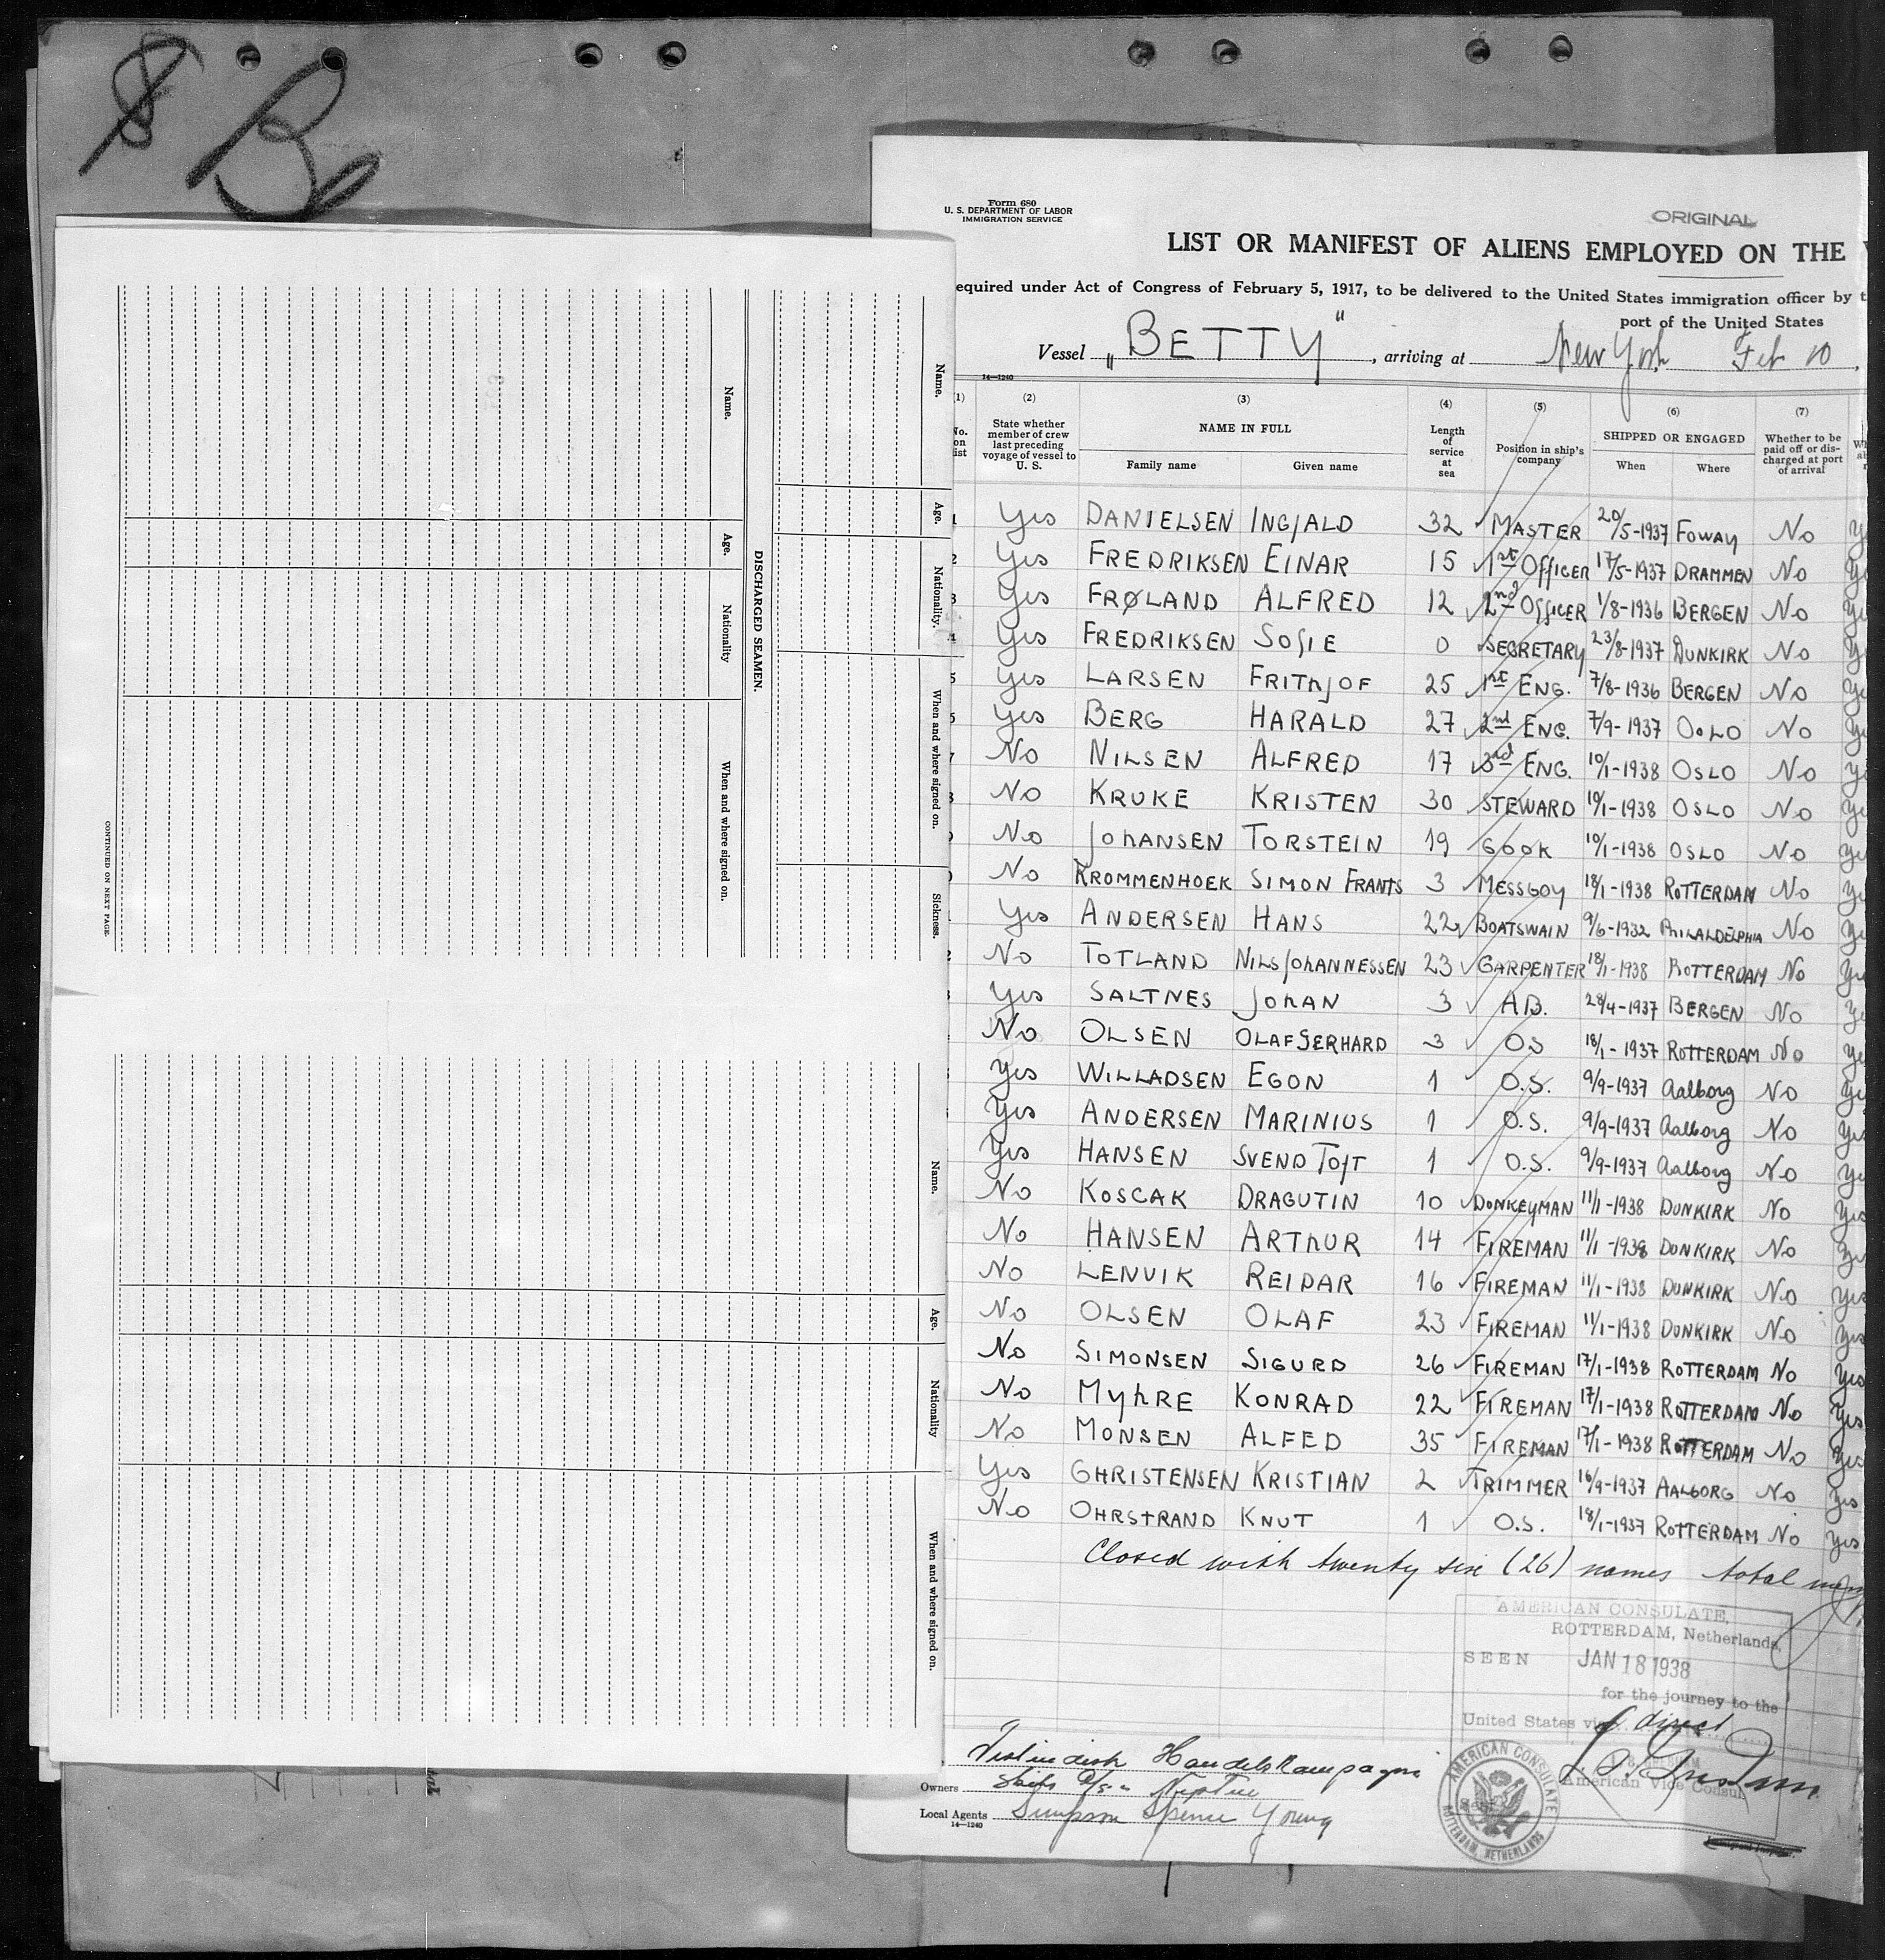 $ Bo
Name.
Age.
Nationality.
When and where signed on.
Sickness.
DISCHARGED SEAMEN.
Name.
Age.
Nationality
When and where signed on.
CONTINUED ON NEXT PAGE.
Name.
Age.
Nationality
When and where signed on.
Form 680
U. S. DEPARTMENT OF LABOR
IMMIGRATION SERVICE
ORIGINAL
LIST OR MANIFEST OF ALIENS EMPLOYED ON THE
equired under Act of Congress of February 5, 1917, to be delivered to the United States immigration officer by t
port of the United States
Vessel „BETTY", arriving at New York Feb 10.
14—1240
(1) (2) (3) (4) (5) (6) (7)
No. on list
State whether member of crew last preceding voyage of vessel to U. S.
NAME IN FULL
Family name Given name
Length of service at sea
Position in ship's company
SHIPPED OR ENGAGED
When Where
Whether to be paid off or discharged at port of arrival
1 Yes DANIELSEN INGJALD 32 MASTER 20/5-1937 FOWAY No Ye
2 Yes FREDRIKSEN EINAR 15 1st OFFICER 17/5-1937 DRAMMEN No Ye
3 Yes FRØLAND ALFRED 12 2nd OFFICER 1/8-1936 BERGEN No Ye
4 Yes FREDRIKSEN SOFIE 0 SECRETARY 23/8-1937 DUNKIRK No Ye
5 Yes LARSEN FRITHJOF 25 1st ENG. 7/8-1936 BERGEN No Ye
6 Yes BERG HARALD 27 2nd ENG. 7/9-1937 OSLO No Ye
7 No NILSEN ALFRED 17 3rd ENG. 10/1-1938 OSLO No Ye
8 No KRUKE KRISTEN 30 STEWARD 10/1-1938 OSLO No Ye
9 No JOHANSEN TORSTEIN 19 COOK 10/1-1938 OSLO No Ye
0 No KROMMENHOEK SIMON FRANTS 3 MESSBOY 18/1-1938 ROTTERDAM No Ye
1 Yes ANDERSEN HANS 22 BOATSWAIN 9/6-1932 PHILALDELPHIA No Ye
2 No TOTLAND NILS JOHANNESSEN 23 CARPENTER 18/1-1938 ROTTERDAM No Ye
Yes SALTNES JOHAN 3 A.B. 28/4-1937 BERGEN No Ye
No OLSEN OLAF GERHARD 3 O.S 18/1-1937 ROTTERDAM No Ye
Yes WILLADSEN EGON 1 O.S. 9/9-1937 Aalborg No Ye
Yes ANDERSEN MARINIUS 1 O.S. 9/9-1937 Aalborg No Yes
Yes HANSEN SVEND TOFT 1 O.S. 9/9-1937 Aalborg No Ye
No KOSCAK DRAGUTIN 10 DONKEYMAN 11/1-1938 DUNKIRK No Yes
No HANSEN ARTHUR 14 FIREMAN 11/1-1938 DUNKIRK No Ye
No LENVIK REIDAR 16 FIREMAN 11/1-1938 DUNKIRK No Yes
No OLSEN OLAF 23 FIREMAN 11/1-1938 DUNKIRK No Yes
No SIMONSEN SIGURD 26 FIREMAN 17/1-1938 ROTTERDAM No Yes
No MYHRE KONRAD 22 FIREMAN 17/1-1938 ROTTERDAM No Yes
No MONSEN ALFED 35 FIREMAN 17/1-1938 ROTTERDAM No Yes
Yes CHRISTENSEN KRISTIAN 2 TRIMMER 16/9-1937 AALBORG No Yes
No OHRSTRAND KNUT 1 O.S. 18/1-1937 ROTTERDAM No Yes
Closed with twenty six (26) names total
AMERICAN CONSULATE,
ROTTERDAM, Netherlands,
SEEN JAN 18 1938
for the journey to the
United States via direct
American Vice Consul
AMERICAN CONSULATE
ROTTERDAM, NETHERLANDS
Handelskompagni
Owners Skibs A/S Neptun
Local Agents Simpson Spence Young
14—1240